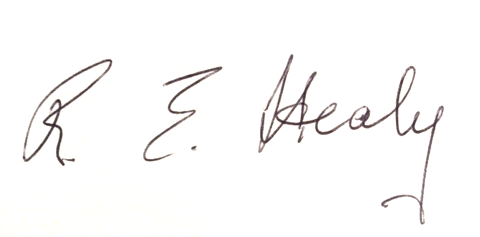 R. E. Healy